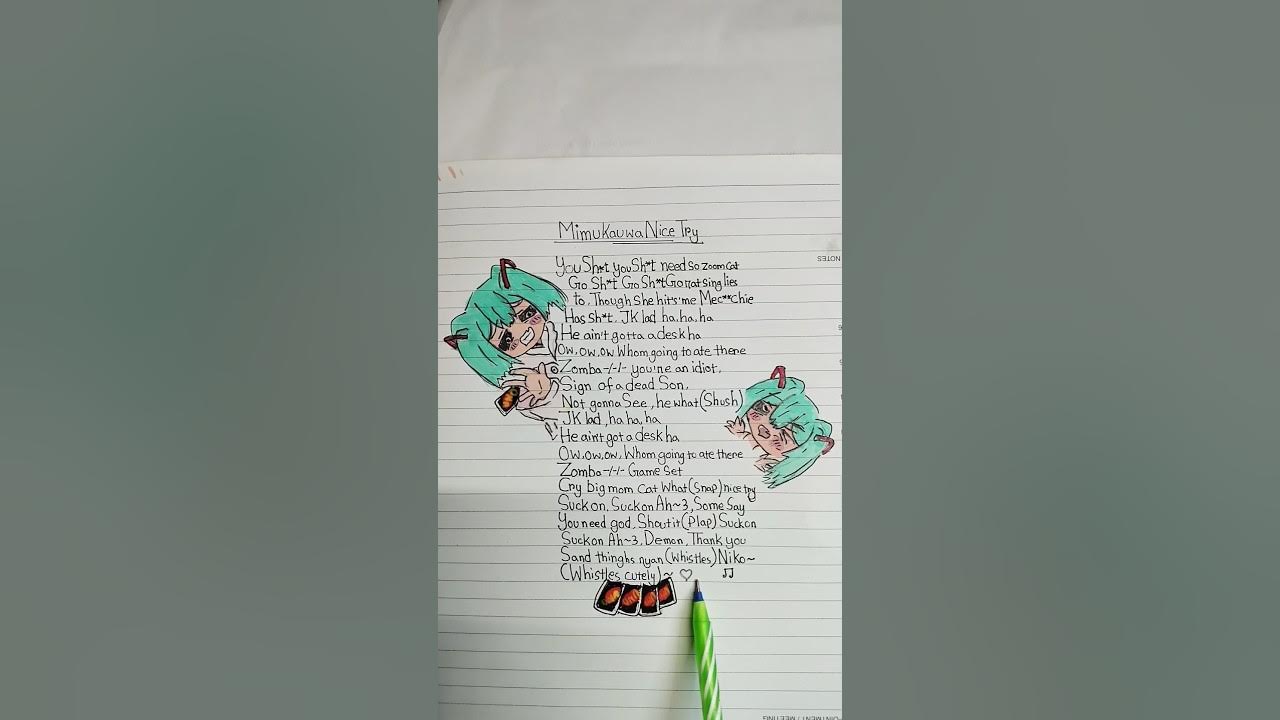 Mimukauwa Nice Try
NOTES
You Sh*t you Sh*t need So Zoom Cat
Go Sh*t Go Sh*t Go rat Sing lies
to, Though She hits me Mec**Chie
Has Sh*t, JK lad ha, ha, ha
He ain't gotta a desk ha
Ow, ow, ow Whom going to ate there
Zomba -/-/- you're an idiot,
Sign of a dead Son,
Not gonna See, he what (Shush)
JK lad, ha, ha, ha
He ain't got a desk ha
Ow, ow, ow, Whom going to ate there
Zomba -/-/- Game Set
Cry big mom Cat What (Snap) nice try
Suck on, Suck on Ah~3, Some Say
You need god, Shout it (Plap) Suck on
Suck on Ah~3, Demon, Thank you
Sand thinghs nyan (Whistles) Niko~
(Whistles cutely)~ ♡ ♫
OINTMENT / MEETING